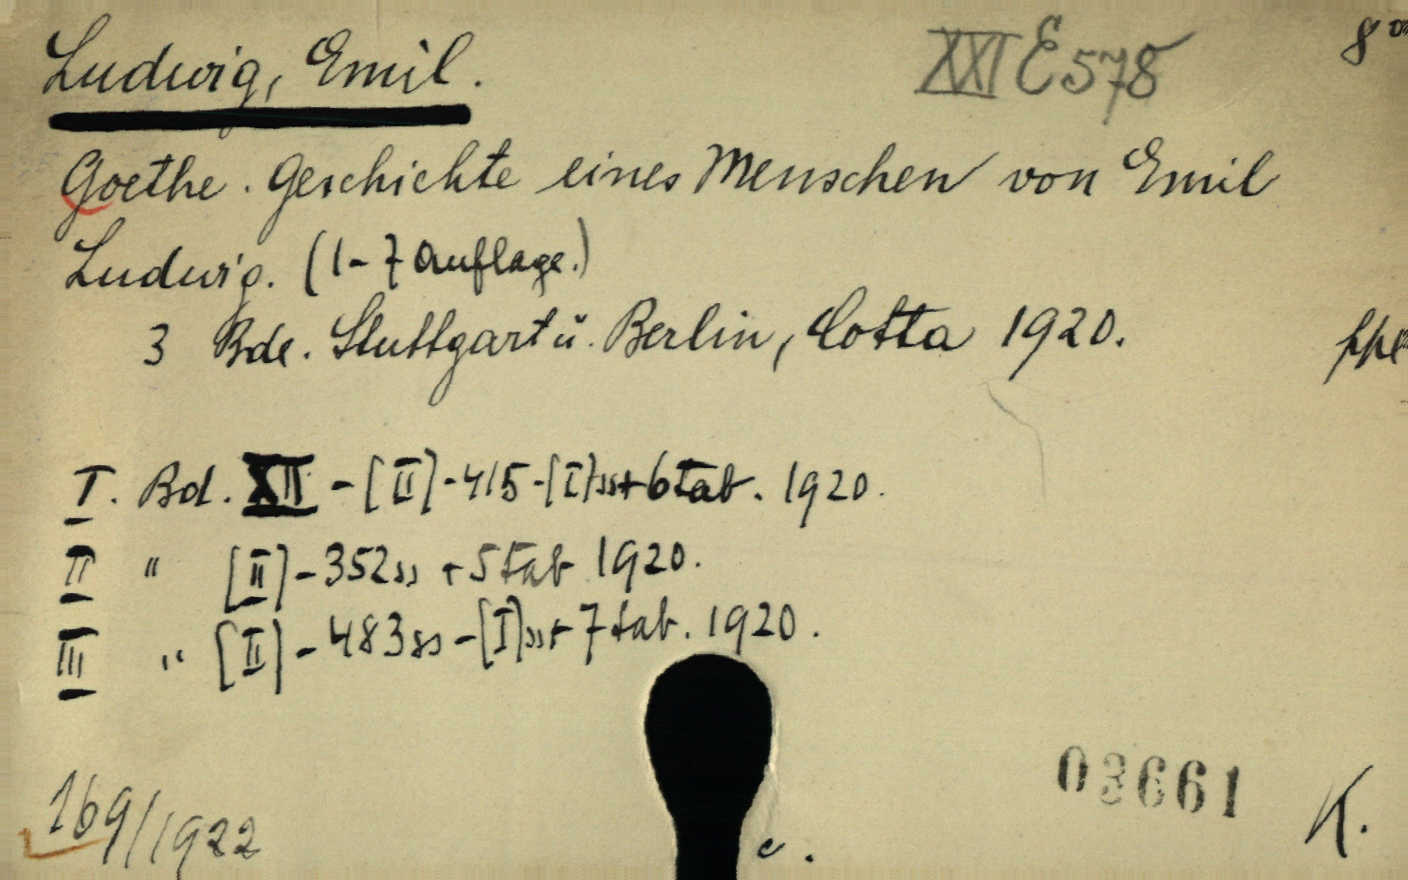 Ludwig, Emil.
XXI E 578
8°
Goethe. Geschichte eines Menschen von Emil
Ludwig. (1-7 Auflage.)
3 Bde. Stuttgart u. Berlin, Cotta 1920.
I. Bd. XII - [II] - 415 - [I] ss + 6 tab. 1920.
II " [II] - 352 ss + 5 tab 1920.
III " [II] - 483 ss - [I] ss + 7 tab. 1920.
169/1922
03661
c.
K.